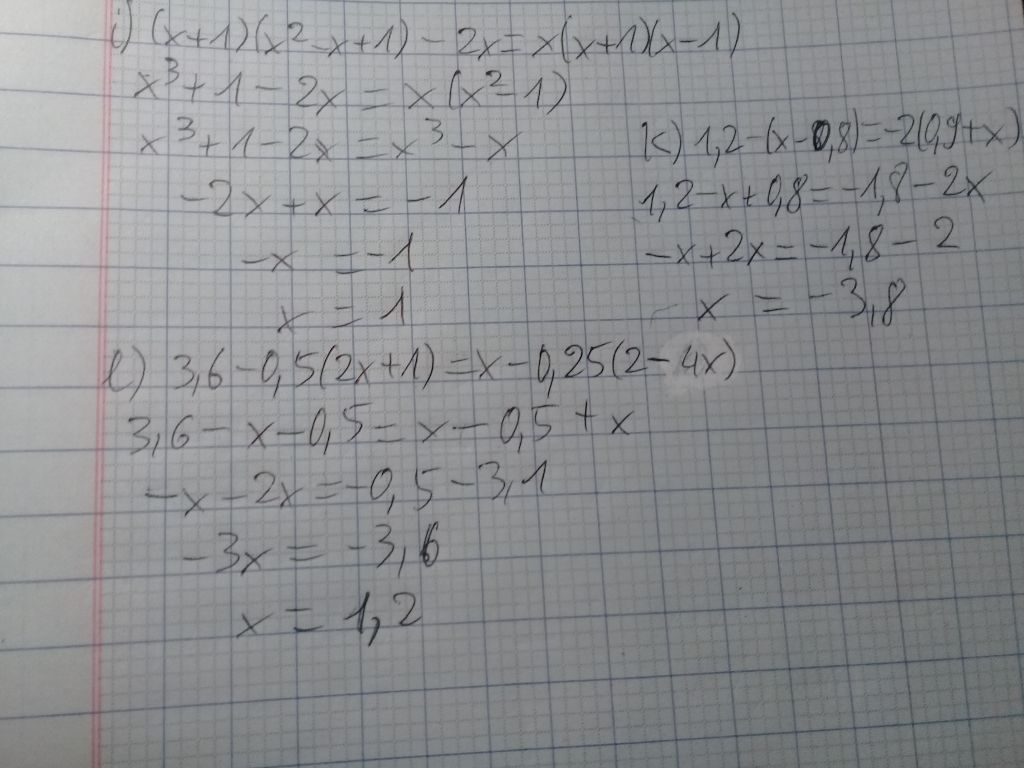 i) (x+1)(x²-x+1) - 2x = x(x+1)(x-1)
x³+1-2x = x(x²-1)
x³+1-2x = x³-x
-2x+x = -1
-x = -1
x = 1
k) 1,2-(x-0,8)=-2(0,9+x)
1,2-x+0,8=-1,8-2x
-x+2x=-1,8-2
x = -3,8
l) 3,6-0,5(2x+1)=x-0,25(2-4x)
3,6-x-0,5=x-0,5+x
-x-2x=-0,5-3,1
-3x = -3,6
x = 1,2